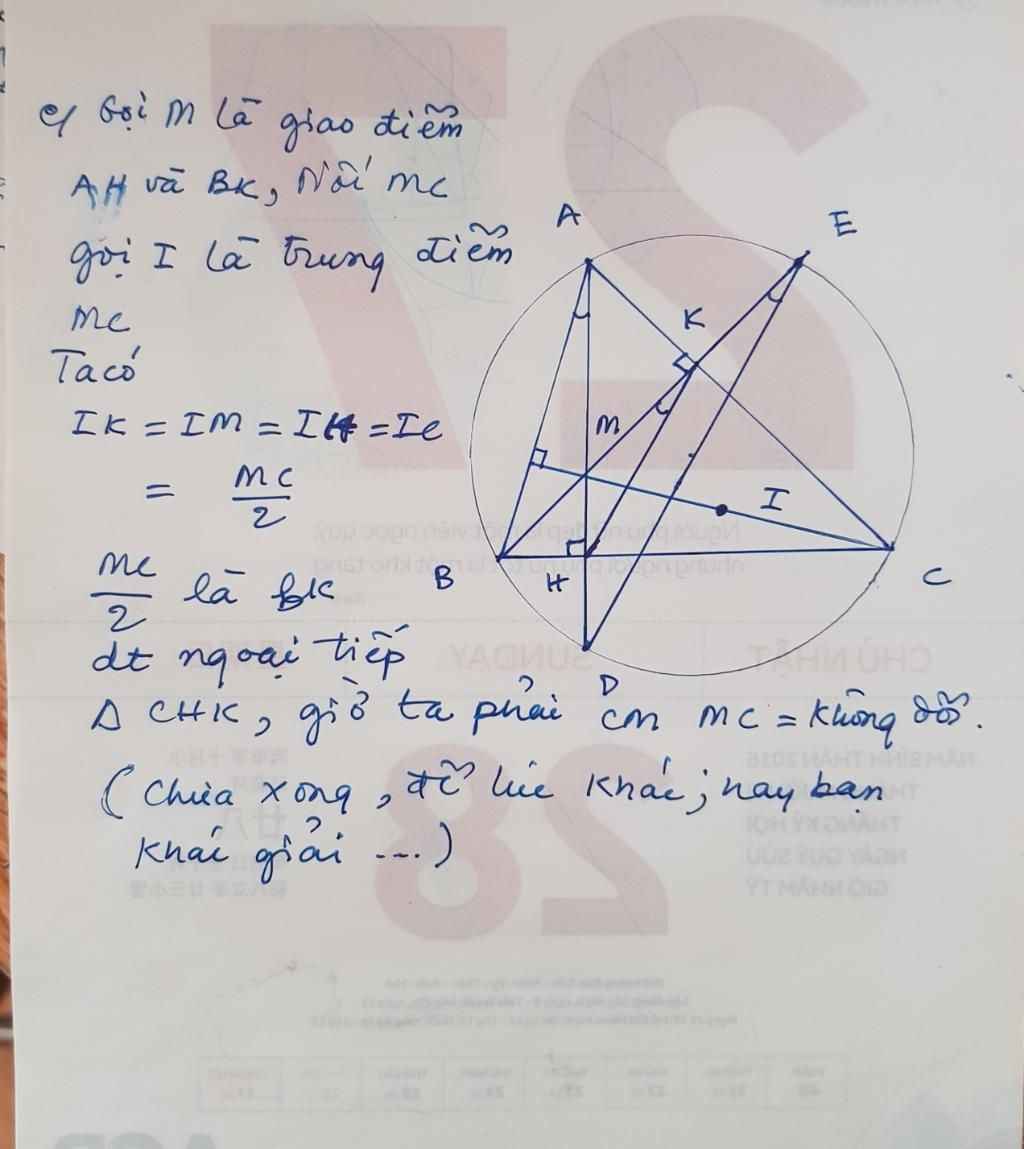 c/ Gọi M là giao điểm
AH và BK, Nối MC
gọi I là trung điểm
MC
Ta có
IK = IM = IH = IC
= MC
2
MC
2
là BK
đt ngoại tiếp
Δ CHK, giờ ta phải cm MC = không đổi.
(Chưa xong, để lúc khác; hay bạn
khác giải ....)
A
E
K
M
I
B
H
C
D
27
CHỦ NHẬT
SUNDAY
28
Người phụ nữ đẹp là một viên ngọc quý,
nhưng người phụ nữ tốt là một kho tàng.
NĂM BÍNH THÂN 2016
THÁNG KỶ HỢI
NGÀY QUÝ SỬU
GIỜ NHÂM TÝ